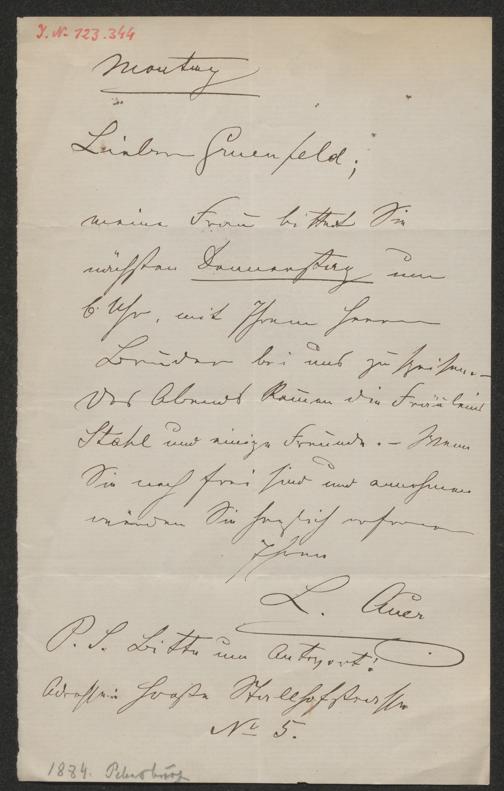 I. N. 123.344
Montag
Lieber Gruenfeld;
meine Frau bittet Sie
nächsten Donnerstag um
6 Uhr, mit Ihrem Herrn
Bruder bei uns zu speisen. –
Des Abends kommen die Fräulein
Stahl und einige Freunde. – Wenn
Sie noch frei sind und annehmen
würden Sie herzlich erfreuen
Ihren
L. Auer
P. S. Bitte um Antwort!
Adresse: Stallhofstrasse
No 5.
1884. Petersburg